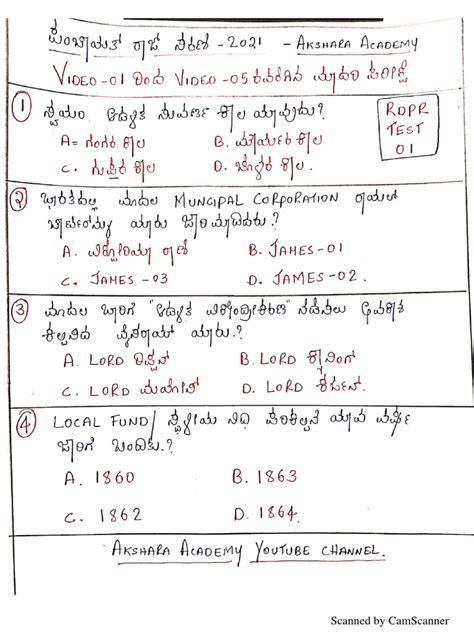 ಪಂಚಾಯತ್ ರಾಜ್ ಸರಣಿ - 2021 - AKSHARA ACADEMY
VIDEO-01 ರಿಂದ VIDEO-05 ರವರೆಗಿನ ಮಾದರಿ ಪರೀಕ್ಷೆ
1 ಸ್ವಯಂ ಆಡಳಿತ ಸುವರ್ಣ ಕಾಲ ಯಾವುದು?
RDPR
TEST
01
A= ಗಂಗರ ಕಾಲ B. ಮೌರ್ಯರ ಕಾಲ
C. ಗುಪ್ತರ ಕಾಲ D. ಚೋಳರ ಕಾಲ
2 ಭಾರತದಲ್ಲಿ ಮೊದಲ MUNCIPAL CORPORATION ರಾಯಲ್
ಚಾರ್ಟರ್‌ನ್ನು ಯಾರು ಜಾರಿ ಮಾಡಿದರು.?
A. ವಿಕ್ಟೋರಿಯಾ ರಾಣಿ B. JAMES-01
C. JAMES-03 D. JAMES-02.
3 ಮೊದಲ ಬಾರಿಗೆ "ಆಡಳಿತ ವಿಕೇಂದ್ರೀಕರಣ" ನಡೆಸಲು ಅವಕಾಶ
ಕಲ್ಪಿಸಿದ ವೈಸರಾಯ್ ಯಾರು.?
A. LORD ರಿಪ್ಪನ್ B. LORD ಕ್ಯಾನಿಂಗ್
C. LORD ಮೆಯೋ D. LORD ಕರ್ಜನ್.
4 LOCAL FUND/ ಸ್ಥಳೀಯ ನಿಧಿ ಪರಿಕಲ್ಪನೆ ಯಾವ ವರ್ಷ
ಜಾರಿಗೆ ಬಂದಿತು.?
A. 1860 B. 1863
C. 1862 D. 1864.
AKSHARA ACADEMY YOUTUBE CHANNEL.
Scanned by CamScanner